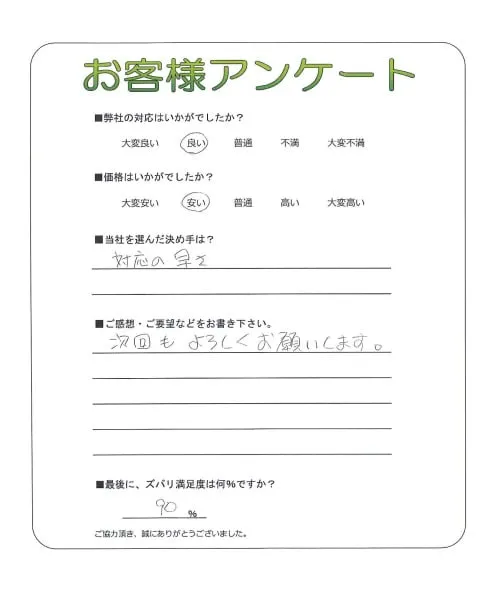 お客様アンケート
■弊社の対応はいかがでしたか？
大変良い 良い 普通 不満 大変不満
■価格はいかがでしたか？
大変安い 安い 普通 高い 大変高い
■当社を選んだ決め手は？
対応の早さ
■ご感想・ご要望などをお書き下さい。
次回もよろしくお願いします。
■最後に、ズバリ満足度は何%ですか？
90 %
ご協力頂き、誠にありがとうございました。